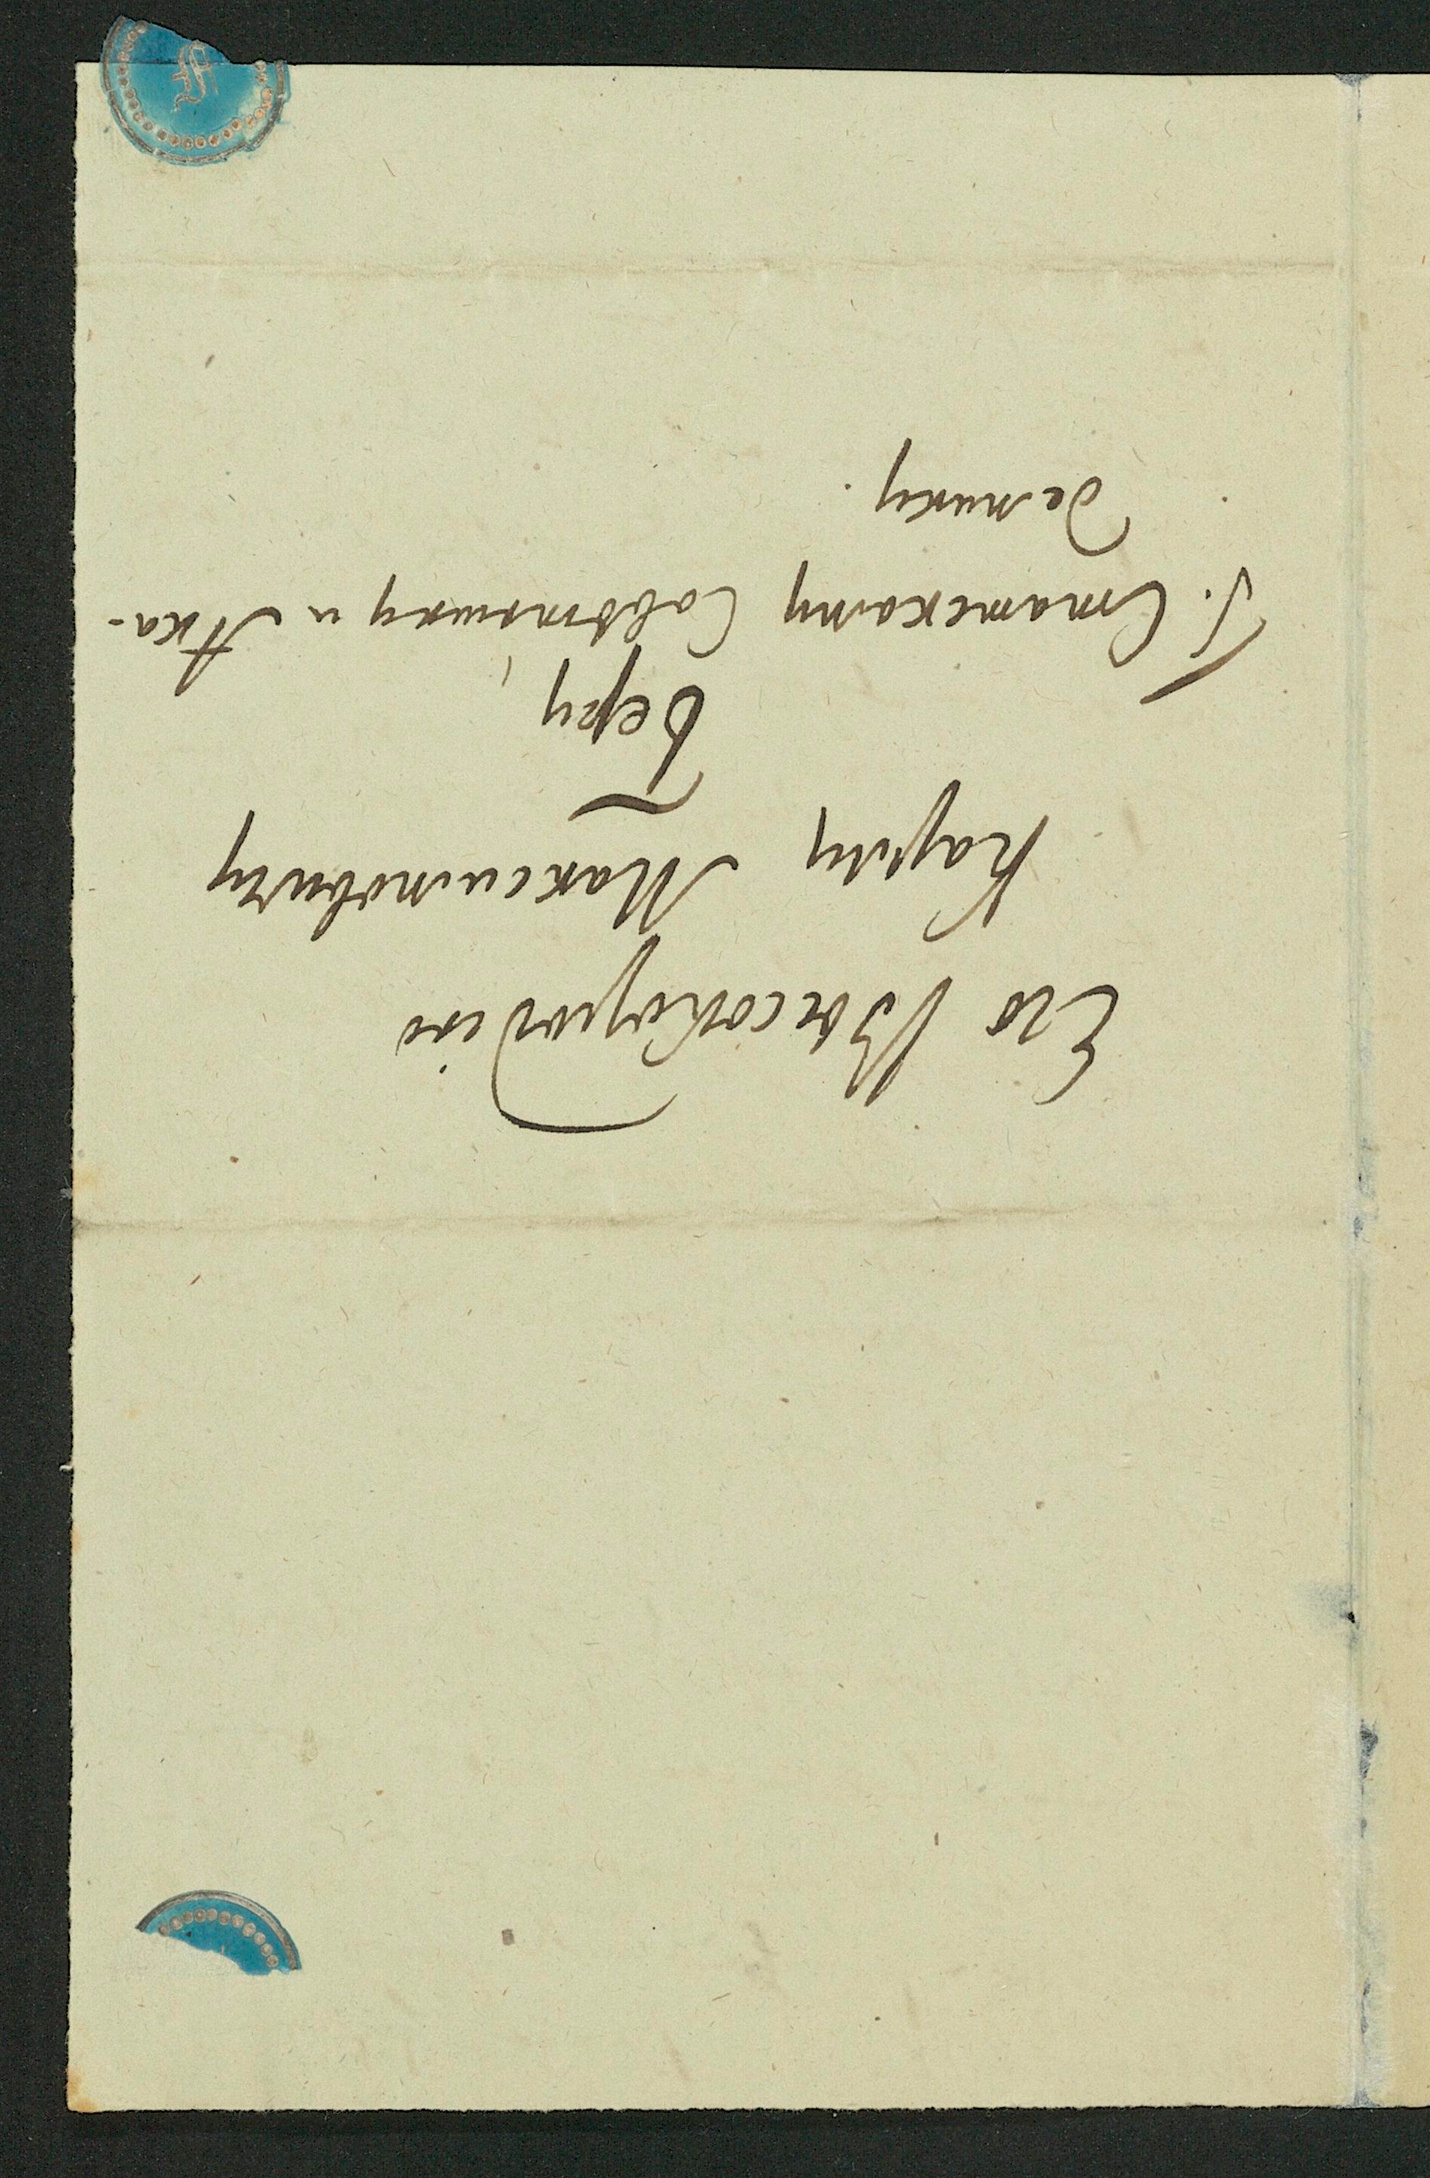 Его Высокородiю
Карлу Максимовичу
Беру,
Г. Статскому Совѣтнику и Ака-
демику.